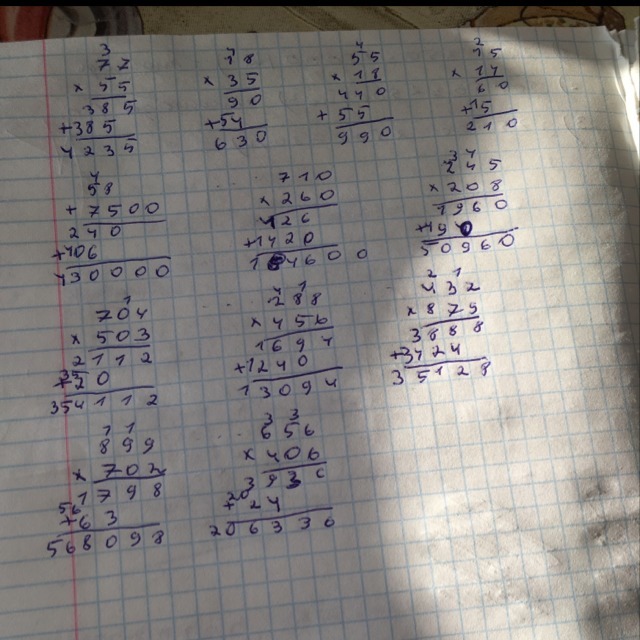 3
77
× 55
385
+385
4235
18
× 35
90
+54
630
4
55
× 18
440
+55
990
15
× 14
60
+15
210
58
× 7500
240
+406
430000
710
× 260
426
+1420
184600
245
× 208
1960
+490
50960
704
× 503
2112
354112
288
× 456
+1240
13094
2 1
432
× 875
3888
35128
1 1
899
× 702
1798
568098
3 3
656
× 406
206336